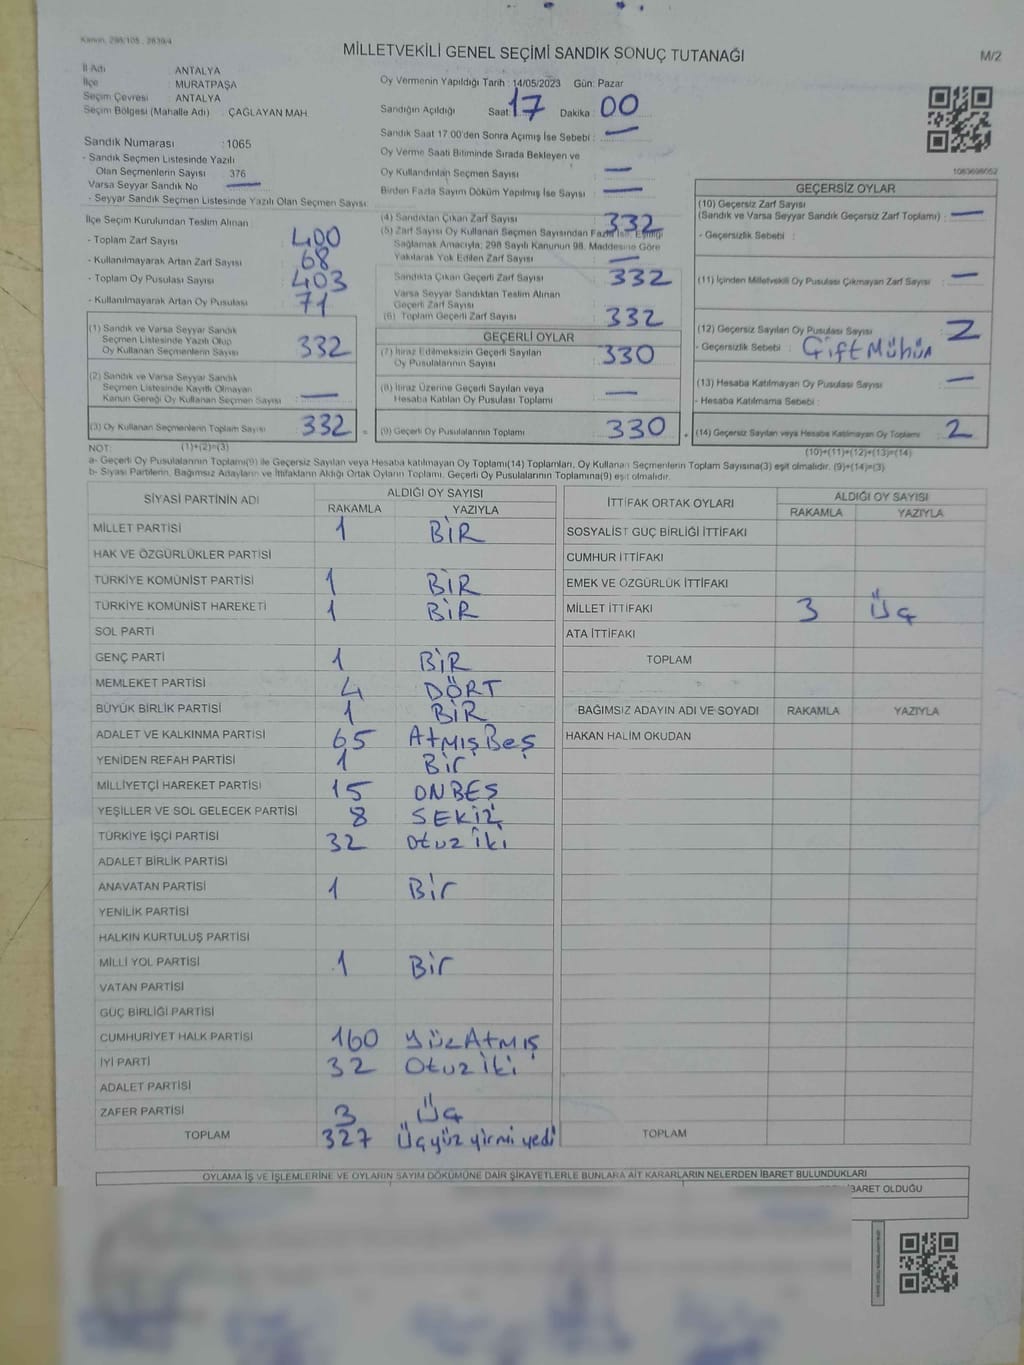 Kanun, 298/105 , 2839/4
MİLLETVEKİLİ GENEL SEÇİMİ SANDIK SONUÇ TUTANAĞI
M/2
İl Adı : ANTALYA
İlçe : MURATPAŞA
Seçim Çevresi : ANTALYA
Seçim Bölgesi (Mahalle Adı) : ÇAĞLAYAN MAH.
Oy Vermenin Yapıldığı Tarih : 14/05/2023 Gün: Pazar
Sandığın Açıldığı Saat : 17 Dakika : 00
Sandık Saat 17.00'den Sonra Açımış İse Sebebi : —
Oy Verme Saati Bitiminde Sırada Bekleyen ve
Oy Kullandırılan Seçmen Sayısı : —
Birden Fazla Sayım Döküm Yapılmış İse Sayısı : —
Sandık Numarası : 1065
- Sandık Seçmen Listesinde Yazılı
Olan Seçmenlerin Sayısı : 376
Varsa Seyyar Sandık No : —
- Seyyar Sandık Seçmen Listesinde Yazılı Olan Seçmen Sayısı:
İlçe Seçim Kurulundan Teslim Alınan
- Toplam Zarf Sayısı : 400
- Kullanılmayarak Artan Zarf Sayısı : 68
- Toplam Oy Pusulası Sayısı : 403
- Kullanılmayarak Artan Oy Pusulası : 71
(1) Sandık ve Varsa Seyyar Sandık
Seçmen Listesinde Yazılı Olup
Oy Kullanan Seçmenlerin Sayısı : 332
(2) Sandık ve Varsa Seyyar Sandık
Seçmen Listesinde Kayıtlı Olmayan
Kanun Gereği Oy Kullanan Seçmen Sayısı : —
(3) Oy Kullanan Seçmenlerin Toplam Sayısı : 332
(4) Sandıktan Çıkan Zarf Sayısı : 332
(5) Zarf Sayısı Oy Kullanan Seçmen Sayısından Fazla İse, Eşitliği
Sağlamak Amacıyla; 298 Sayılı Kanunun 98. Maddesine Göre
Yakılarak Yok Edilen Zarf Sayısı : —
Sandıkta Çıkan Geçerli Zarf Sayısı : 332
Varsa Seyyar Sandıktan Teslim Alınan
Geçerli Zarf Sayısı
(6) Toplam Geçerli Zarf Sayısı : 332
GEÇERLİ OYLAR
(7) İtiraz Edilmeksizin Geçerli Sayılan
Oy Pusulalarının Sayısı : 330
(8) İtiraz Üzerine Geçerli Sayılan veya
Hesaba Katılan Oy Pusulası Toplamı : —
= (9) Geçerli Oy Pusulalarının Toplamı : 330
1083698052
GEÇERSİZ OYLAR
(10) Geçersiz Zarf Sayısı
(Sandık ve Varsa Seyyar Sandık Geçersiz Zarf Toplamı) : —
- Geçersizlik Sebebi :
(11) İçinden Milletvekili Oy Pusulası Çıkmayan Zarf Sayısı : —
(12) Geçersiz Sayılan Oy Pusulası Sayısı : 2
- Geçersizlik Sebebi : Çift Mühür
(13) Hesaba Katılmayan Oy Pusulası Sayısı : —
- Hesaba Katılmama Sebebi :
+ (14) Geçersiz Sayılan veya Hesaba Katılmayan Oy Toplamı : 2
NOT: (1)+(2)=(3)
(10)+(11)+(12)+(13)=(14)
a- Geçerli Oy Pusulalarının Toplamı(9) ile Geçersiz Sayılan veya Hesaba katılmayan Oy Toplamı(14) Toplamları, Oy Kullanan Seçmenlerin Toplam Sayısına(3) eşit olmalıdır. (9)+(14)=(3)
b- Siyasi Partilerin, Bağımsız Adayların ve İttifakların Aldığı Ortak Oyların Toplamı, Geçerli Oy Pusulalarının Toplamına(9) eşit olmalıdır.
SİYASİ PARTİNİN ADI ALDIĞI OY SAYISI
RAKAMLA YAZIYLA
MİLLET PARTİSİ 1 BİR
HAK VE ÖZGÜRLÜKLER PARTİSİ
TÜRKİYE KOMÜNİST PARTİSİ 1 BİR
TÜRKİYE KOMÜNİST HAREKETİ 1 BİR
SOL PARTİ
GENÇ PARTİ 1 BİR
MEMLEKET PARTİSİ 4 DÖRT
BÜYÜK BİRLİK PARTİSİ 1 BİR
ADALET VE KALKINMA PARTİSİ 65 AtMIŞ BeŞ
YENİDEN REFAH PARTİSİ 1 Bir
MİLLİYETÇİ HAREKET PARTİSİ 15 ONBEŞ
YEŞİLLER VE SOL GELECEK PARTİSİ 8 SEKİZ
TÜRKİYE İŞÇİ PARTİSİ 32 Otuz iki
ADALET BİRLİK PARTİSİ
ANAVATAN PARTİSİ 1 Bir
YENİLİK PARTİSİ
HALKIN KURTULUŞ PARTİSİ
MİLLİ YOL PARTİSİ 1 Bir
VATAN PARTİSİ
GÜÇ BİRLİĞİ PARTİSİ
CUMHURİYET HALK PARTİSİ 160 yüzAtmış
İYİ PARTİ 32 Otuz iki
ADALET PARTİSİ
ZAFER PARTİSİ 3 Üç
TOPLAM 327 Üçyüz yirmi yedi
İTTİFAK ORTAK OYLARI ALDIĞI OY SAYISI
RAKAMLA YAZIYLA
SOSYALİST GÜÇ BİRLİĞİ İTTİFAKI
CUMHUR İTTİFAKI
EMEK VE ÖZGÜRLÜK İTTİFAKI
MİLLET İTTİFAKI 3 Üç
ATA İTTİFAKI
TOPLAM
BAĞIMSIZ ADAYIN ADI VE SOYADI RAKAMLA YAZIYLA
HAKAN HALİM OKUDAN
TOPLAM
OYLAMA İŞ VE İŞLEMLERİNE VE OYLARIN SAYIM DÖKÜMÜNE DAİR ŞİKAYETLERLE BUNLARA AİT KARARLARIN NELERDEN İBARET BULUNDUKLARI
İBARET OLDUĞU